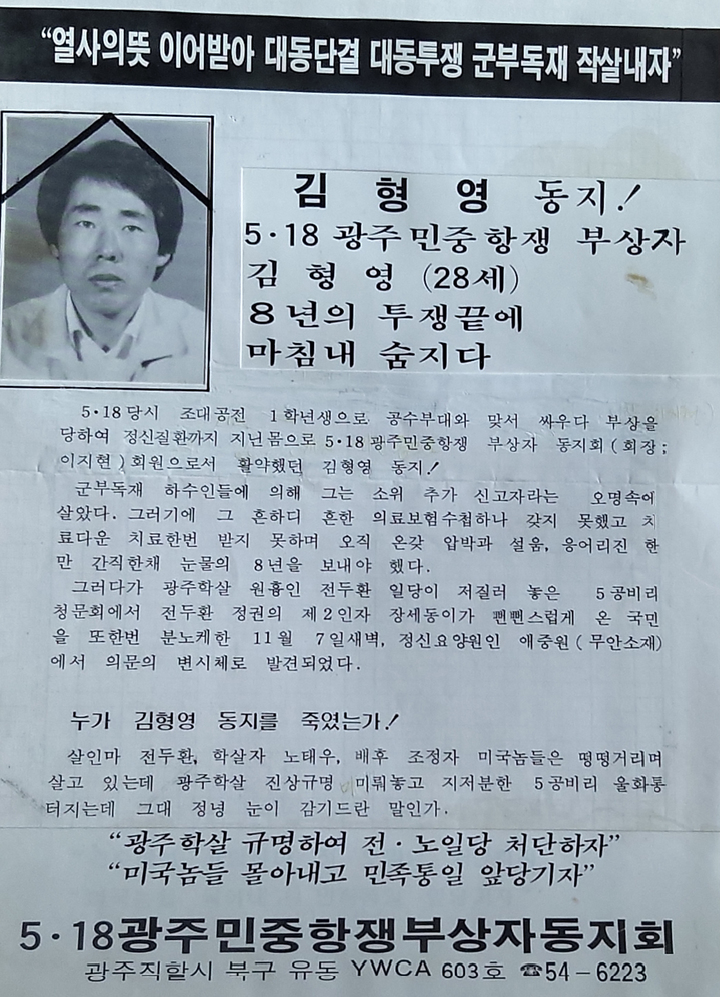 “열사의뜻 이어받아 대동단결 대동투쟁 군부독재 작살내자”
김 형 영 동지!
5·18 광주민중항쟁 부상자
김 형 영 (28세)
8년의 투쟁끝에
마침내 숨지다
5·18당시 조대공전 1학년생으로 공수부대와 맞서 싸우다 부상을
당하여 정신질환까지 지닌몸으로 5·18광주민중항쟁 부상자 동지회(회장;
이지현)회원으로서 활약했던 김형영 동지!
군부독재 하수인들에 의해 그는 소위 추가 신고자라는 오명속에
살았다. 그러기에 그 흔하디 흔한 의료보험수첩하나 갖지 못했고 치
료다운 치료한번 받지 못하며 오직 온갖 압박과 설움, 응어리진 한
만 간직한채 눈물의 8년을 보내야 했다.
그러다가 광주학살 원흉인 전두환 일당이 저질러 놓은 5공비리
청문회에서 전두환 정권의 제2인자 장세동이가 뻔뻔스럽게 온 국민
을 또한번 분노케한 11월 7일새벽, 정신요양원인 애중원(무안소재)
에서 의문의 변시체로 발견되었다.
누가 김형영 동지를 죽였는가!
살인마 전두환, 학살자 노태우, 배후 조정자 미국놈들은 떵떵거리며
살고 있는데 광주학살 진상규명 미뤄놓고 지저분한 5공비리 울화통
터지는데 그대 정녕 눈이 감기드란 말인가.
“광주학살 규명하여 전·노일당 처단하자”
“미국놈들 몰아내고 민족통일 앞당기자”
5·18광주민중항쟁부상자동지회
광주직할시 북구 유동 YWCA 603호 ☎54-6223